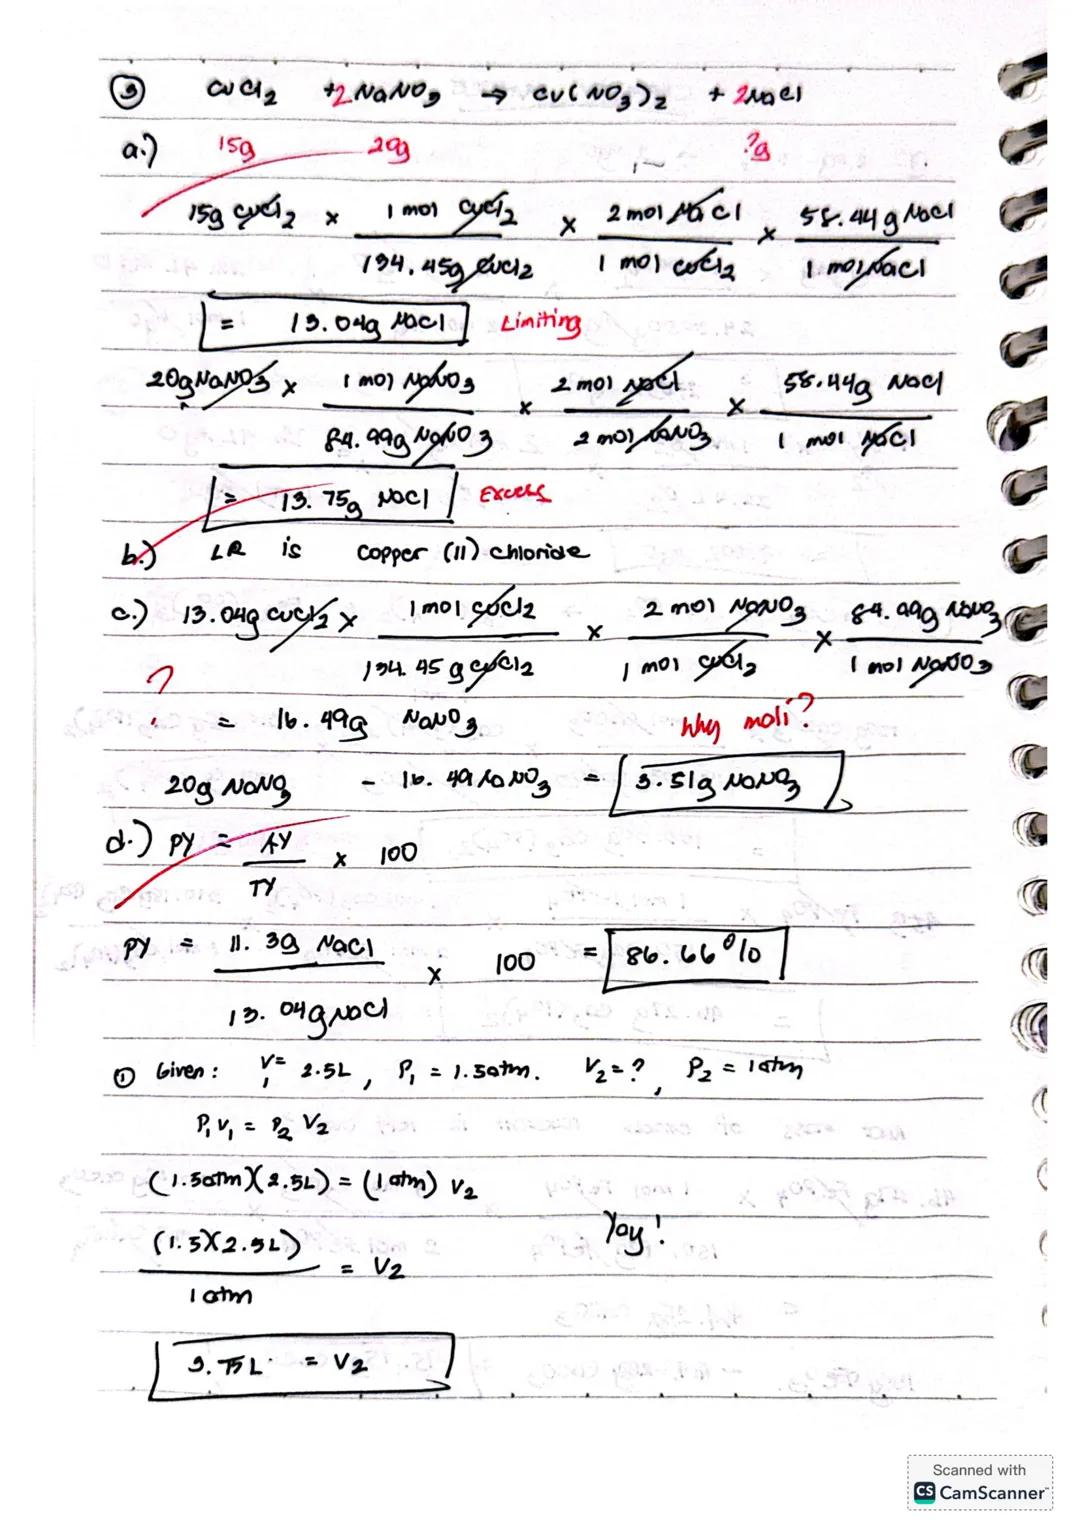 ③ CuCl₂ + 2 NaNO₃ → Cu(NO₃)₂ + 2NaCl
a.) 15g 20g ?g
15g CuCl₂ x 1 mol CuCl₂ / 134.45g CuCl₂ x 2 mol NaCl / 1 mol CuCl₂ x 58.44 g NaCl / 1 mol NaCl
= 13.04g NaCl Limiting
20g NaNO₃ x 1 mol NaNO₃ / 84.99g NaNO₃ x 2 mol NaCl / 2 mol NaNO₃ x 58.44g NaCl / 1 mol NaCl
= 13.75g NaCl Excess
b.) LR is copper (II) chloride
c.) 13.04g CuCl₂ x 1 mol CuCl₂ / 134.45 g CuCl₂ x 2 mol NaNO₃ / 1 mol CuCl₂ x 84.99g NaNO₃ / 1 mol NaNO₃
?
= 16.49g NaNO₃ Why moli?
20g NaNO₃ - 16.49 NaNO₃ = 3.51g NaNO₃
d.) PY = AY / TY x 100
PY = 11.3g NaCl / 13.04g NaCl x 100 = 86.66%
① Given: V₁ = 2.5L, P₁ = 1.5atm. V₂ = ?, P₂ = 1atm
P₁V₁ = P₂V₂
(1.5atm)(2.5L) = (1atm) V₂
(1.5)(2.5L) / 1atm = V₂ Yay!
3.75L = V₂
Scanned with
CS CamScanner